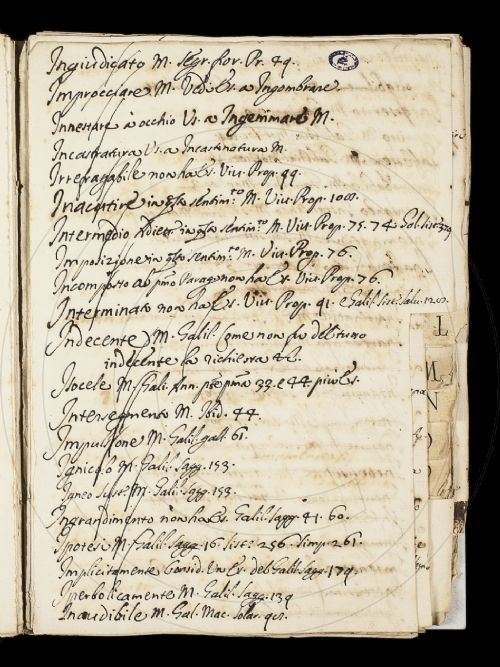 Ingiudicato M. Segr. Fior. Pr. 49.
Improcciare M. Ved. Es. a Ingombrare.
Innestare a occhio Vs. a Ingemmare M.
Incastratura Vs. a Incastonatura M.
Irrefragabile non ha Es. Viv. Prop. 99.
Inacutire in qsto sentim.to M. Viv. Prop. 100.
Intermedio in qsto sentim.to M. Viv. Prop. 75. 74
Imposizione in qsto sentim.to M. Viv. Prop. 76.
Incomposto non ha Es. Viv. Prop. 76.
Interminato non ha Es. Viv. Prop. 91. e Galil.
Indecente M. Galil. Come non fu del tutto
indecente la richiesta &c.
Isocele M. Gali. 39. e 44 più Es.
Intersegamento M. Ibid. 44.
Impulsione M. Galil. gall. 61.
Ignicolo M. Galil. Sagg. 153.
Igneo M. Galil. Sagg. 153.
Ingrandimento non ha Es. Galil. Sagg. 41. 60.
Ipotesi M. Galil. Sagg. 16. Sist. 256. 261.
Implicitamente Es. del Galil. Sagg. 179.
Iperbolicamente M. Galil. Sagg. 139
Inaudibile M. Gal. Mac. Solar.
L
M
N
O